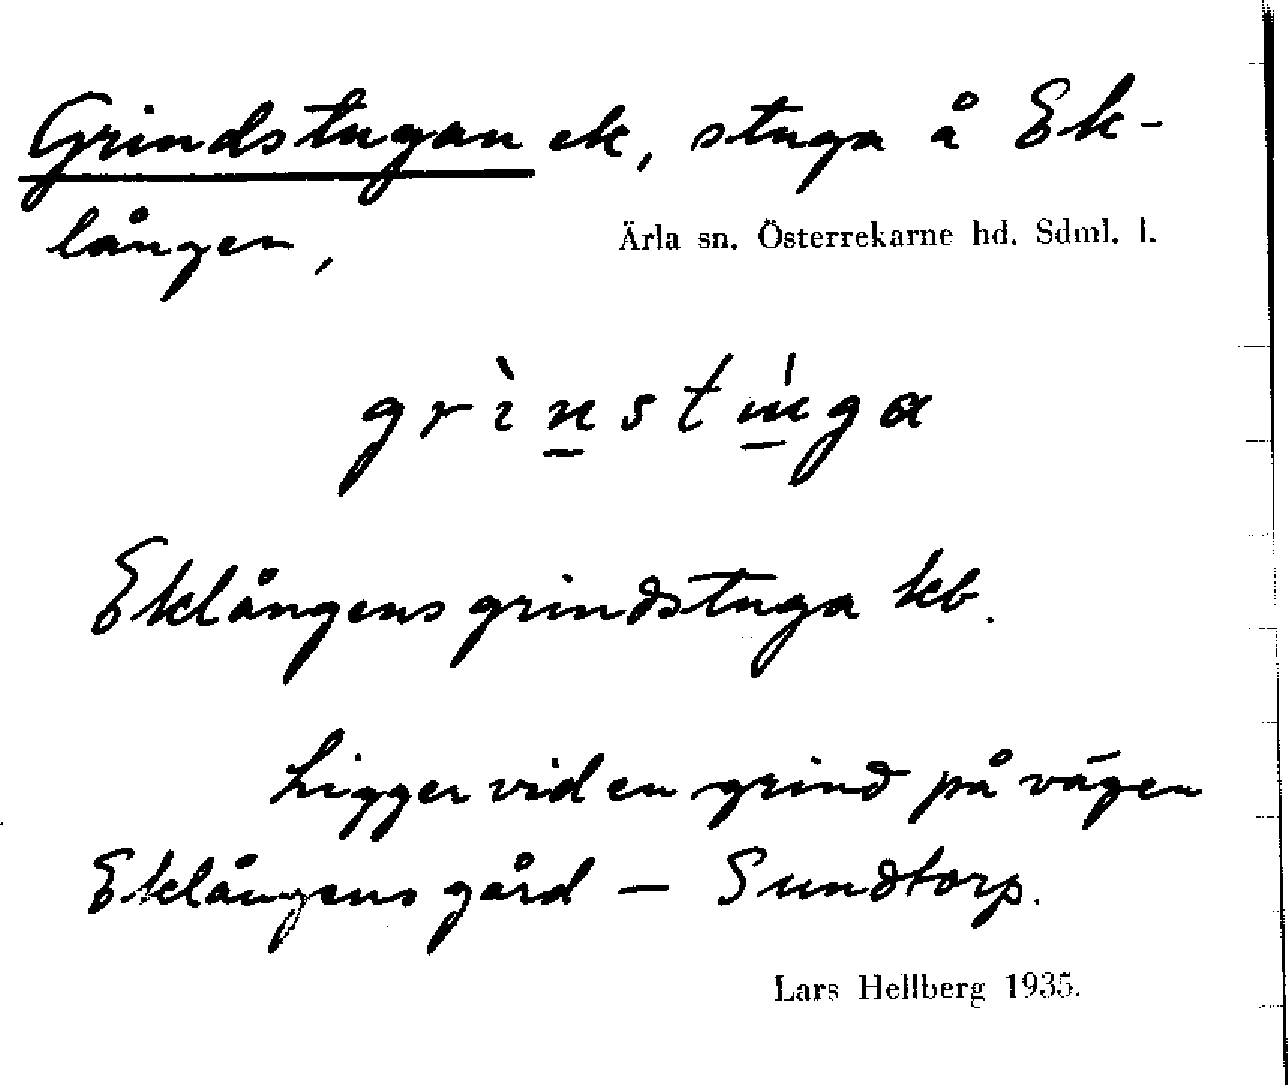 Grindstugan ek, stuga å Ek-
lången, Ärla sn. Österrekarne hd. Sdml. l.
grìnstúga
Eklångens grindstuga kb.
Ligger vid en grind på vägen
Eklångens gård – Sundtorp.
Lars Hellberg 1935.